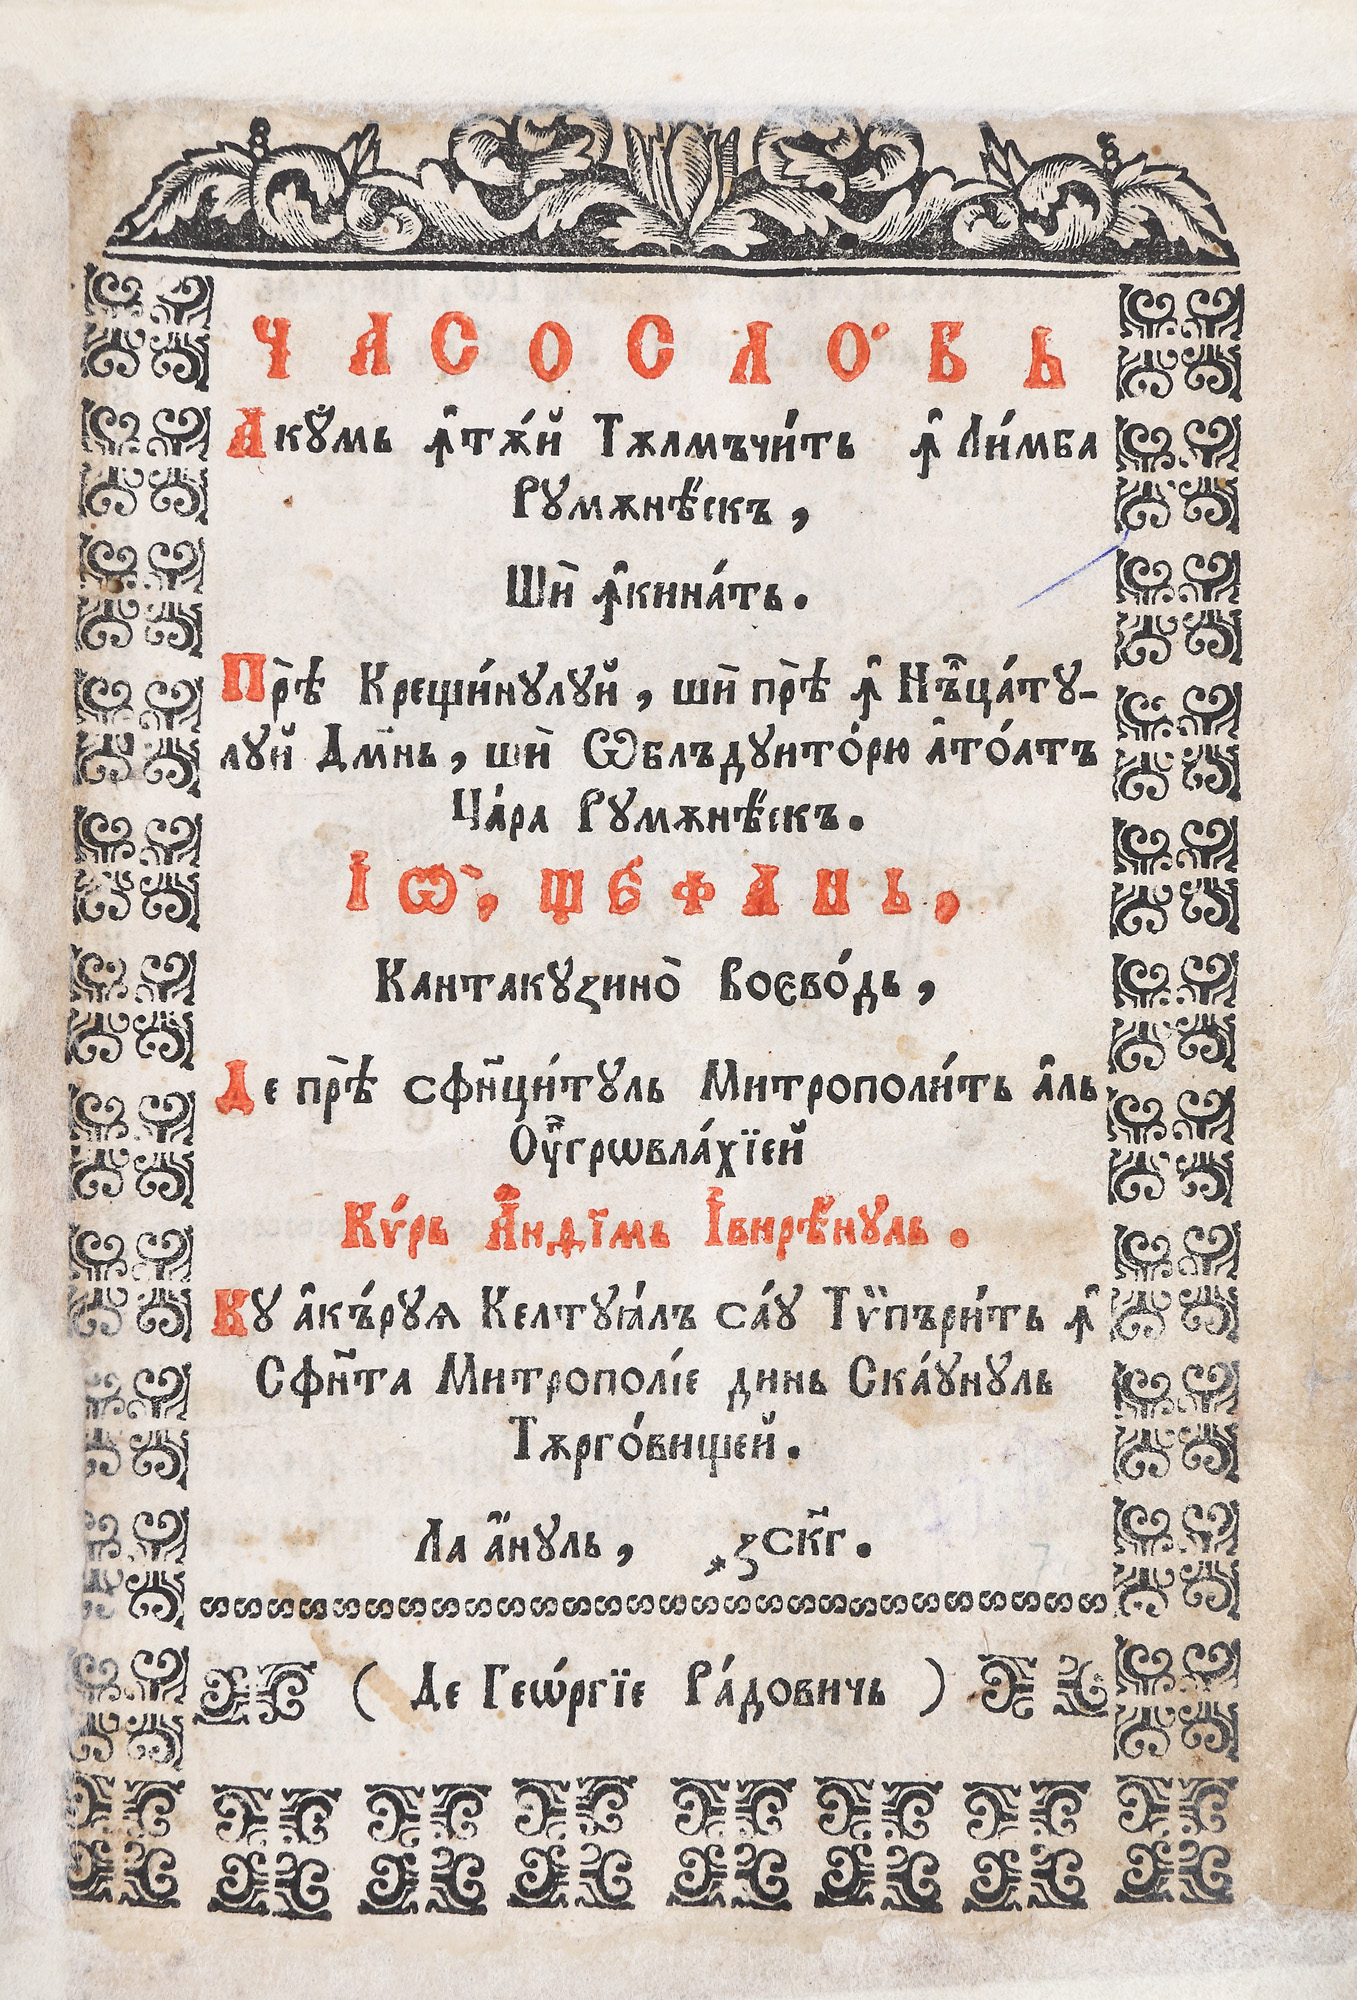 ЧАСОСЛО́ВЬ
Аку́мь ꙟ҆тѫ́й Тѫлмъчи́ть ꙟ҆ Ли́мба
Румѫнѣ́скъ,
Шѝ ꙟ҆кина́ть.
Прѣ́ Креши́нулуй, шѝ прѣ́ ꙟ҆ Нъⷧ҇ца́ту-
луй Дмⷩ҇нь, шѝ Ѡблъдуито́рю а҆то́атъ
Ца́ра Румѫнѣ́скъ.
І҆Ѡ̀, ЩЕ́ФАНЬ,
Кантакузинѡ̀ Воєво́дь,
Де прѣ́ сфн҃ци́туль Митрополи́ть а҆ль
Оу҆ггрѡвла́хїей
Кѵ́рь А҆́нѳїмь І҆вирѣ́нуль.
Ку а҆къ́руѧ Келтуꙗ́лъ са́у Тѷпъри́ть ꙟ҆
Сфн҃та Митрополі́е динь Ска́унуль
Тѫрго́вищей.
Ла а҆́нуль, ҂зск҃г.
( Де Геѡ́ргїе Ра́довичь )